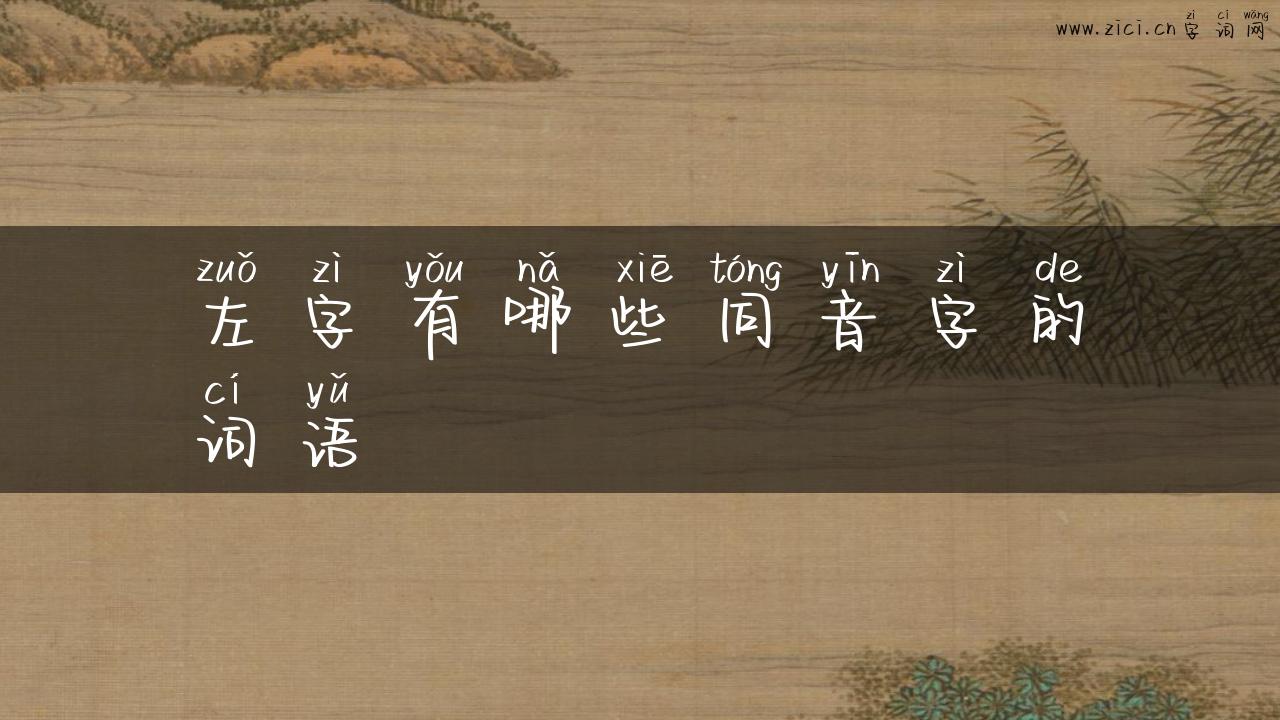 zì cí wǎng
www.zici.cn 字词网
zuǒ zì yǒu nǎ xiē tóng yīn zì de
左字有哪些同音字的
cí yǔ
词语